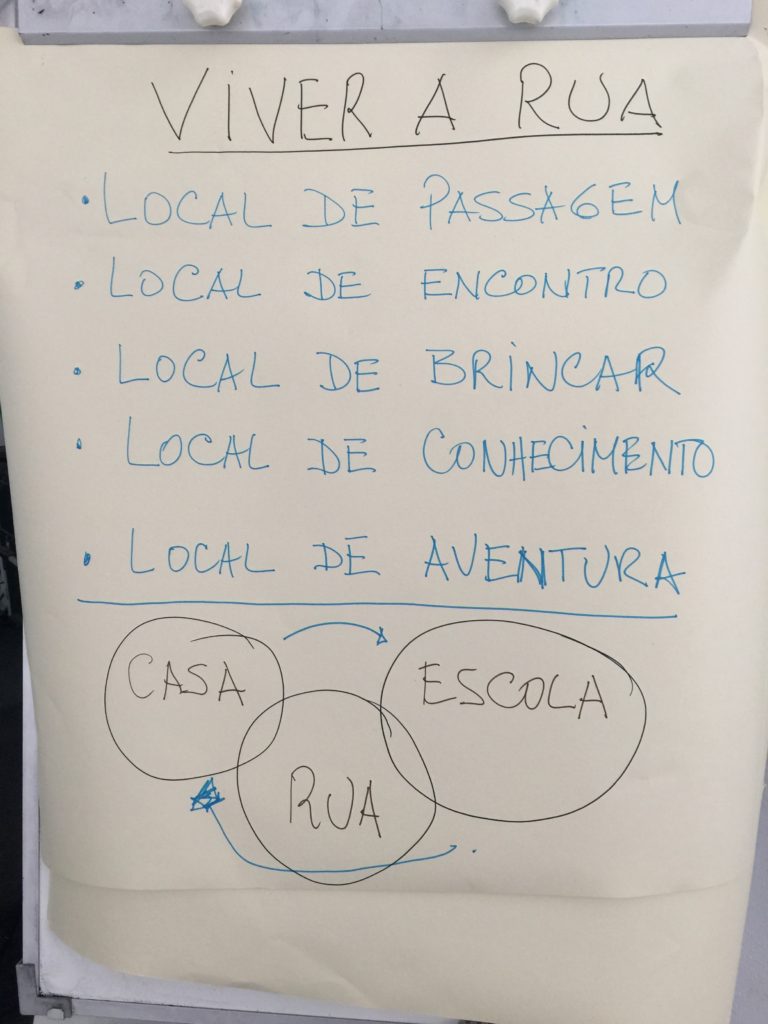 VIVER A RUA
• LOCAL DE PASSAGEM
• LOCAL DE ENCONTRO
• LOCAL DE BRINCAR
• LOCAL DE CONHECIMENTO
• LOCAL DE AVENTURA
CASA
ESCOLA
RUA